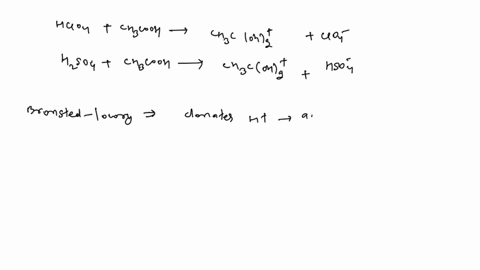 HClO4 + CH3COOH ⟶ CH3C(OH)2+ + ClO4-
H2SO4 + CH3COOH ⟶ CH3C(OH)2+ + HSO4-
Bronsted-lowry ⇒ donates H+ → a.